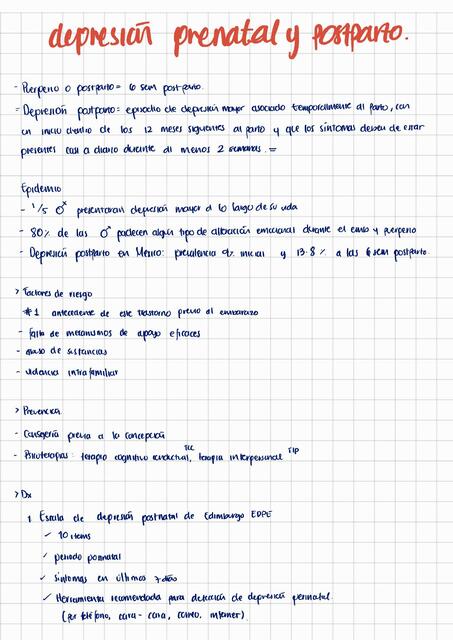 depresión prenatal y postparto.
- Puerperio o postparto = 6 sem postparto.
- Depresión postparto = episodio de depresión mayor asociado temporalmente al parto, con
un inicio dentro de los 12 meses siguientes al parto y que los síntomas deben de estar
presentes casi a diario durante al menos 2 semanas. =
Epidemio
- 1/5 ♂ presentaran depresión mayor a lo largo de su vida
- 80% de las ♂ padecen algún tipo de alteración emocional durante el emb y puerperio
- Depresión postparto en México: prevalencia 9% inicial y 13.8% a las 6 sem postparto.
> Factores de riesgo
#1 antecedente de este trastorno previo al embarazo
- falta de mecanismos de apoyo eficaces
- abuso de sustancias
- violencia intrafamiliar
> Prevención
- Consejería previa a la concepción
- Psicoterapias: terapia cognitivo conductual, TCC terapia interpersonal TIP
> Dx
1 Escala de depresión postnatal de Edimburgo EDPE
✓ 10 items
✓ periodo
✓ síntomas en últimos 7 días
✓ Herramienta recomendada para detección de depresión perinatal
(por teléfono, cara - cara, correo, internet)